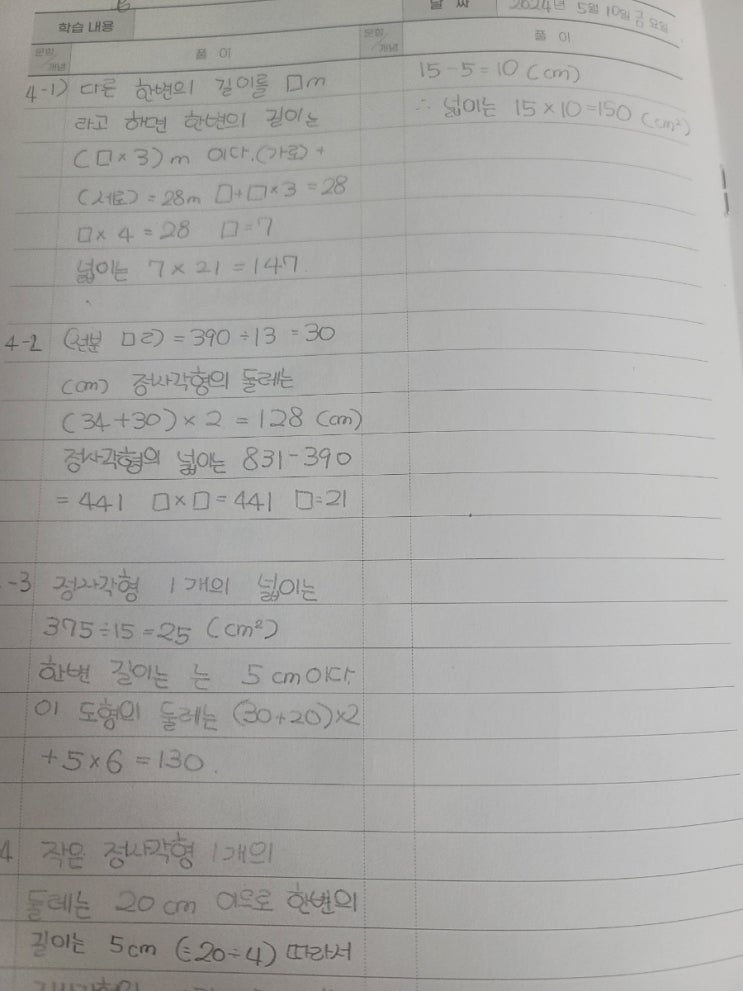 날 짜 2024년 5월 10일 금요일
학습 내용
문항/개념 풀 이
4-1) 다른 한변의 길이를 □m
라고 하면 한변의 길이는
(□×3)m 이다. (가로)+
(세로)=28m □+□×3=28
□×4=28 □=7
넓이는 7×21=147.
4-2 (선분 ㅁㄹ)=390÷13=30
(cm) 정사각형의 둘레는
(34+30)×2=128 (cm)
정사각형의 넓이는 831-390
=441 □×□=441 □=21
-3 정사각형 1개의 넓이는
375÷15=25 (cm²)
한변 길이는 는 5cm이다.
이 도형의 둘레는 (30+20)×2
+5×6=130.
4 작은 정사각형 1개의
둘레는 20cm 이므로 한변의
길이는 5cm (=20÷4) 따라서
문항/개념 풀 이
15-5=10 (cm)
∴ 넓이는 15×10=150 (cm²)